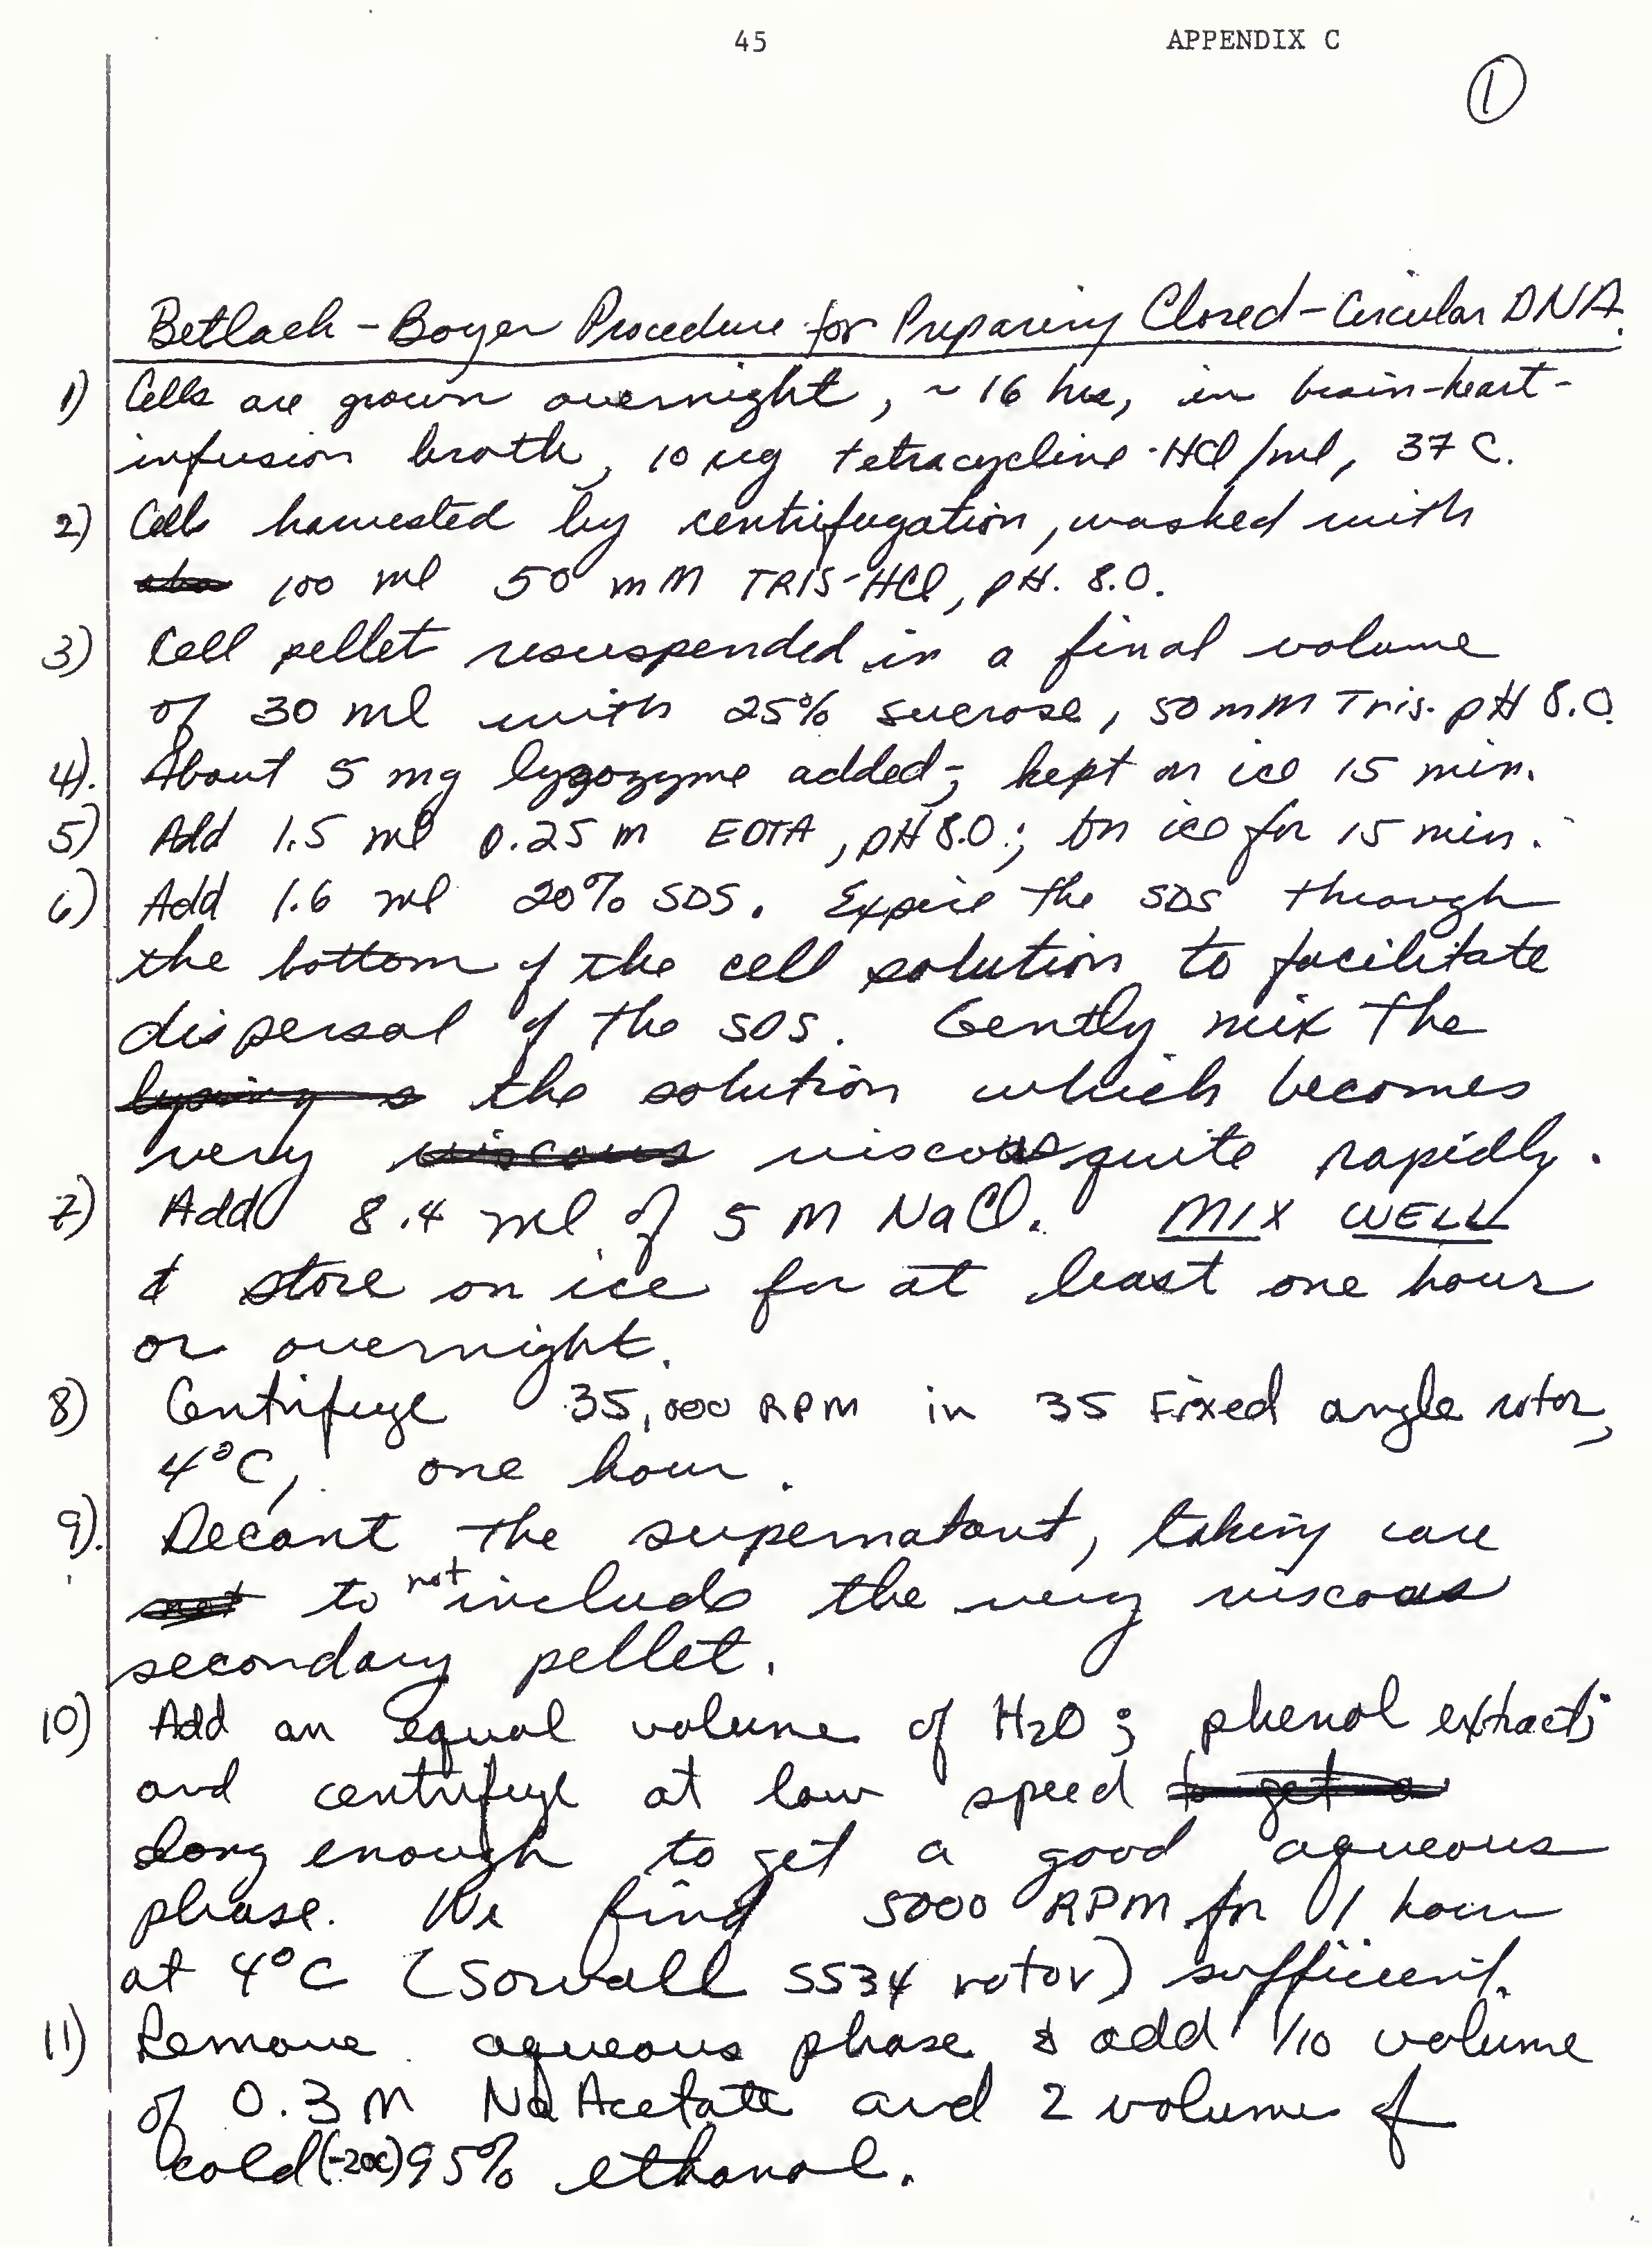 45 APPENDIX C
1
Betlach-Boyer Procedure for Preparing Closed-Circular DNA.
1) Cells are grown overnight, ~16 hrs, in brain-heart-
infusion broth, 10 µg tetracycline·HCl/ml, 37 C.
2) Cells harvested by centrifugation, washed with
100 ml 50 mM TRIS-HCl, pH. 8.0.
3) Cell pellet resuspended in a final volume
of 30 ml with 25% sucrose, 50 mM Tris. pH 8.0.
4). About 5 mg lysozyme added; kept on ice 15 min.
5) Add 1.5 ml 0.25 M EDTA, pH 8.0; on ice for 15 min.
6) Add 1.6 ml 20% SDS. Expire the SDS through
the bottom of the cell solution to facilitate
dispersal of the SDS. Gently mix the
lysing s the solution which becomes
very viscous viscous quite rapidly.
7) Add 8.4 ml of 5 M NaCl. MIX WELL
& store on ice for at least one hour
or overnight.
8) Centrifuge 35,000 RPM in 35 Fixed angle rotor,
4°C, one hour.
9). Decant the supernatant, taking care
not to not include the very viscous
secondary pellet.
10) Add an equal volume of H2O; phenol extract;
and centrifuge at low speed to get a
long enough to get a good aqueous
phase. We find 5000 RPM for 1 hour
at 4°C (Sorvall SS34 rotor) sufficient.
11) Remove aqueous phase & add 1/10 volume
of 0.3 M Na Acetate and 2 volume of
cold (-20C) 95% ethanol.